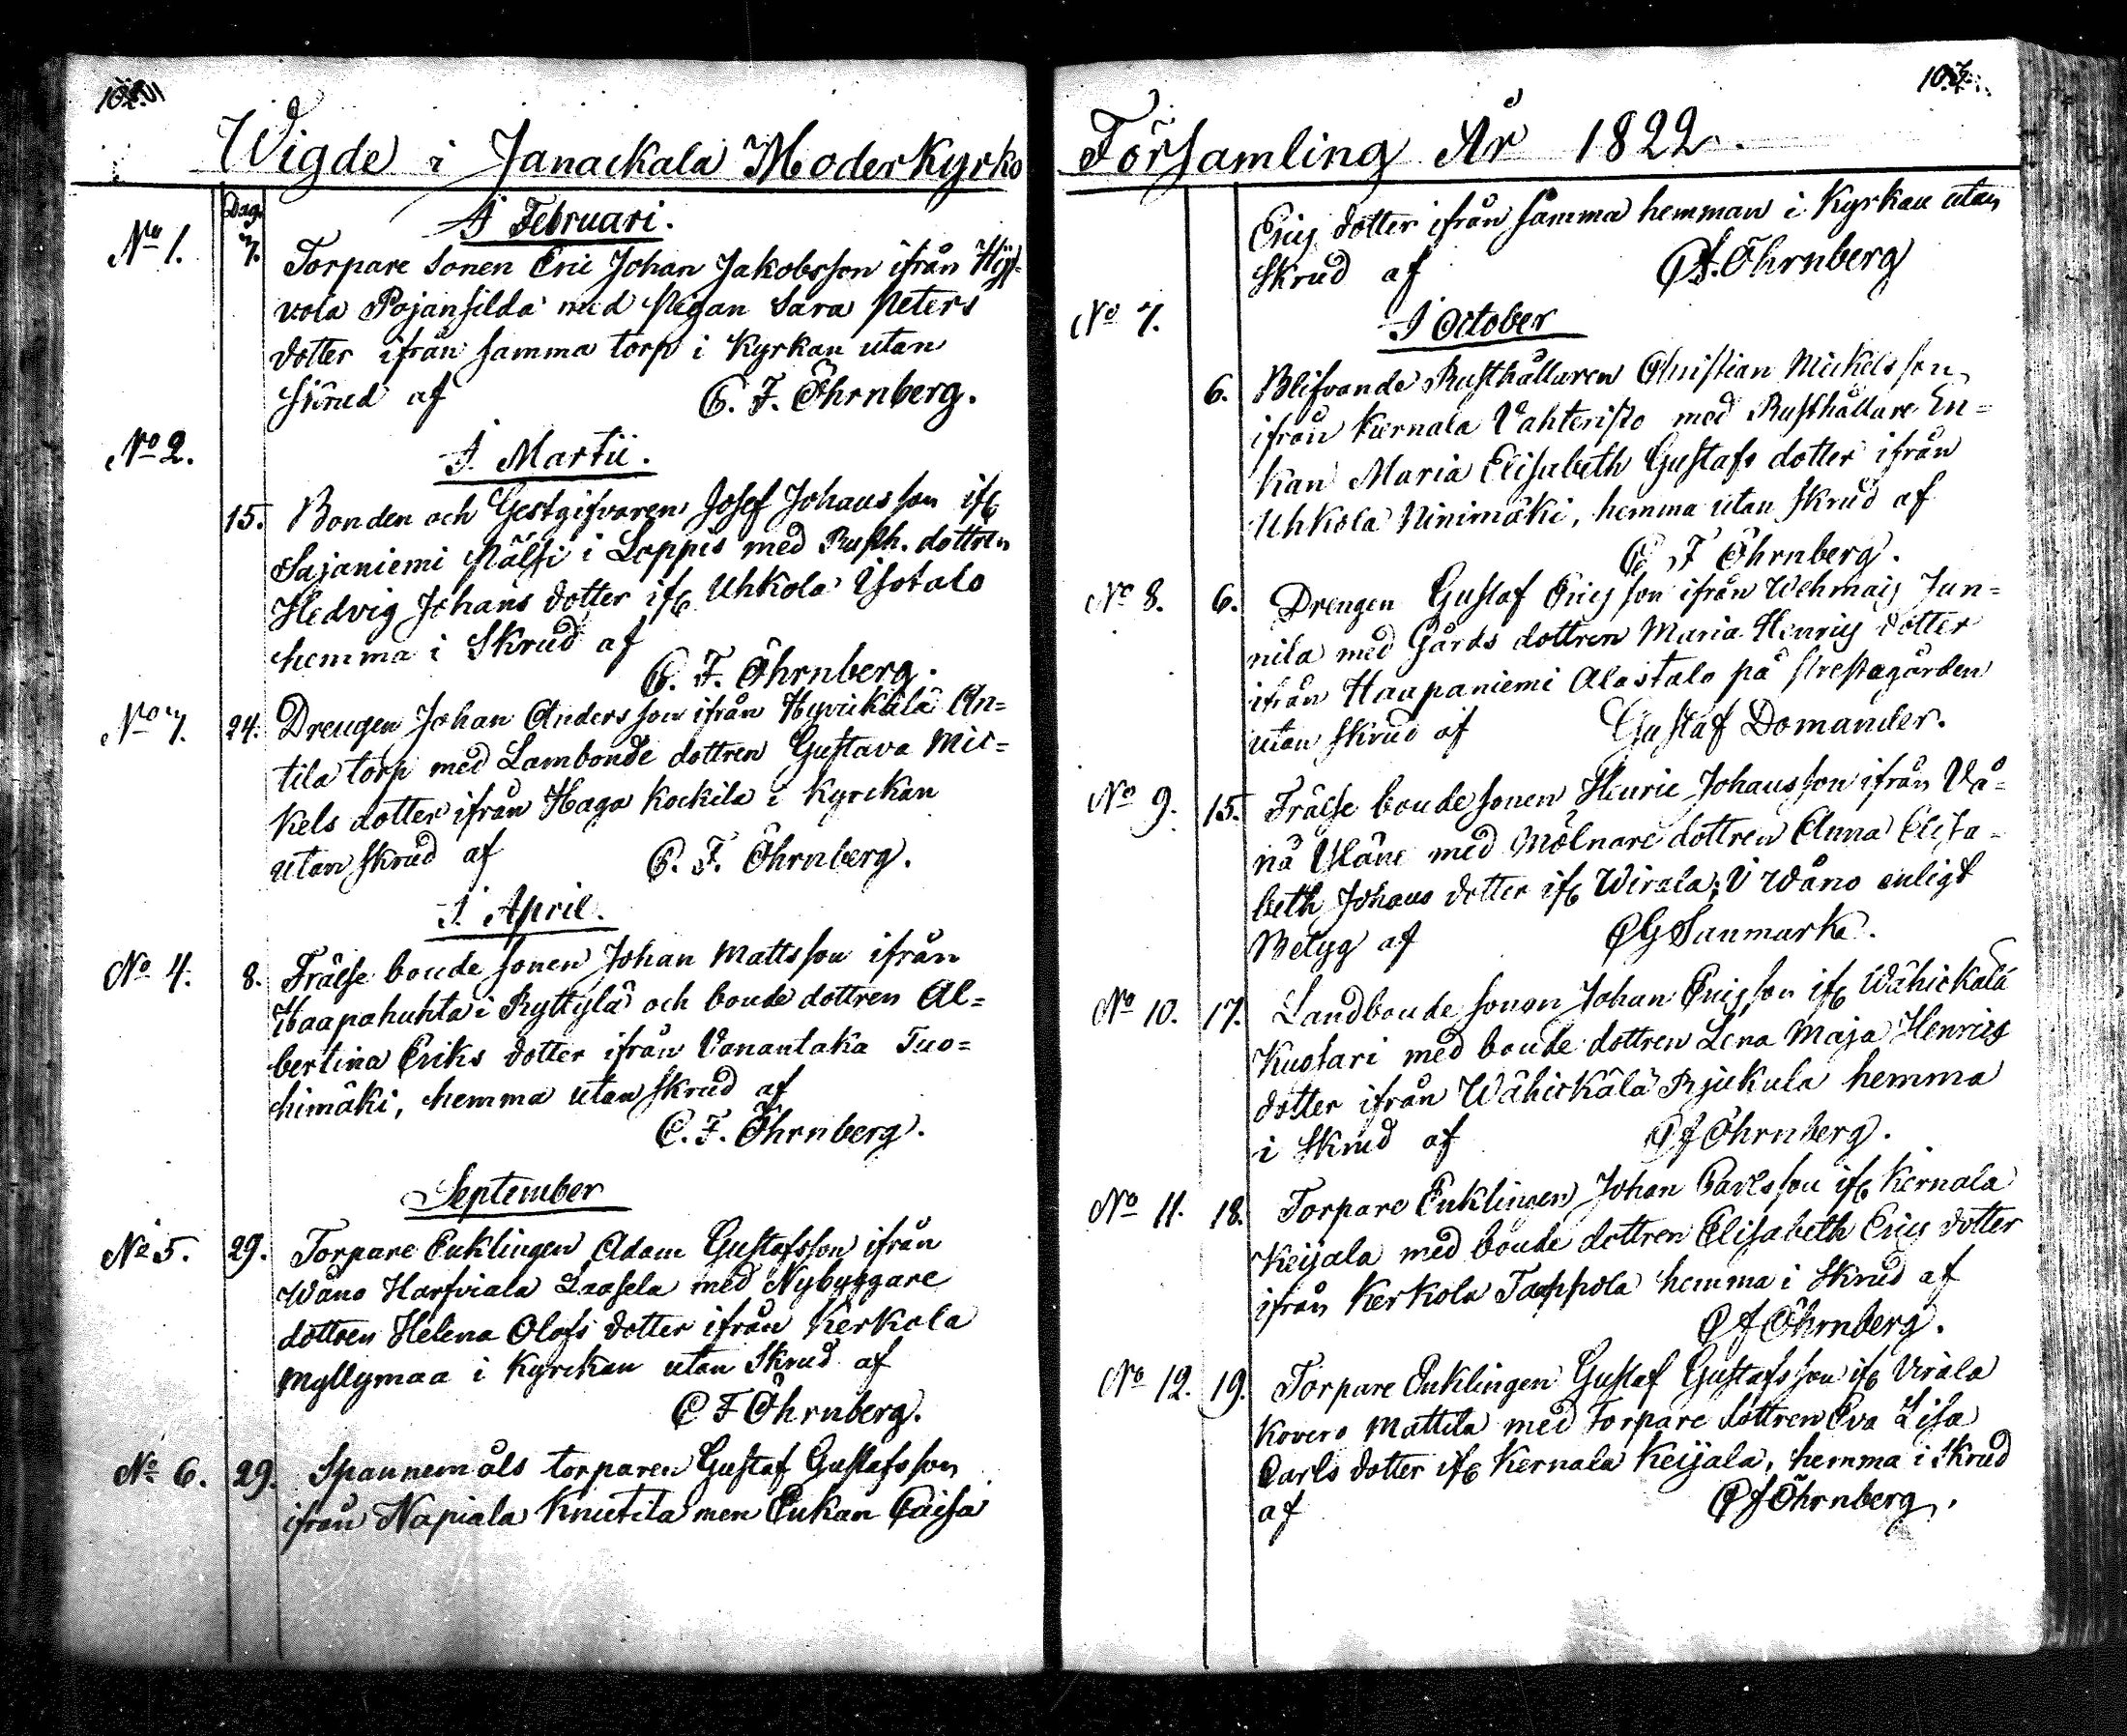 Wigde i Janackala Moderkyrko
Dag.
I Februari.
No 1. 7. Torpare Sonen Eric Johan Jakobsson ifrån Hyf-
vola Pojansilda med Pigan Sara Peters
dotter ifrån samma torp i Kyrkan utan
skrud af C. F. Öhrnberg.
No 2. I Martii.
15. Bonden och Gestgifvaren Josef Johansson ifr
Sajaniemi Pälsi i Loppis med Rusth. dottren
Hedvig Johans dotter ifr Uhkola Isotalo
hemma i Skrud af
C. F. Öhrnberg.
No 24. Drengen Johan Andersson ifrån Hyvikälä An=
tila torp med Lambonde dottren Gustava Mic=
kels dotter ifrån Haga Kockila i Kyrckan
utan skrud af C. F. Öhrnberg.
I April.
No 4. 8. Frälse bonde sonen Johan Mattsson ifrån
Haapahuhta i Ryttylä och bonde dottren Al=
bertina Eriks dotter ifrån Vanantaka Tuo=
himäki, hemma utan skrud af
C. F. Öhrnberg.
September
No 5. 29. Torpare Enklingen Adam Gustafsson ifrån
Wåno Harfviala Laasela med Nybyggare
dottren Helena Olofs dotter ifrån Kerkola
Myllymaa i Kyrckan utan Skrud af
C F Öhrnberg.
No 6. 29. Spannemåls torparen Gustaf Gustafsson
ifrån Napiala Knutila men Enkan Caisa
Församling År 1822.
Erics dotter ifrån samma hemman i Kyrkan utan
Skrud af CF. Öhrnberg
No 7. I October
6. Blifvande Rusthållaren Christian Mickelsson
ifrån Kernala Vahteristo med Rusthållare En=
kan Maria Elisabeth Gustafs dotter ifrån
Uhkola Ninimäki, hemma utan skrud af
C F Öhrnberg.
No 8. 6. Drengen Gustaf Ericsson ifrån Wehmais Jun=
nila med Gårds dottren Maria Henrics dotter
ifrån Haapaniemi Alastalo på Prestagården
utan skrud af Gustaf Domander.
No 9. 15. Frälse bonde sonen Henric Johansson ifrån Vå=
nå Yläne med Mölnare dottren Anna Elisa=
beth Johans dotter ifr Wirala, i Wåno enligt
Betyg af CG Sanmark.
No 10. 17. Landbonde sonen Johan Ericsson ifr Wähickälä
Kuotari med bonde dottren Lena Maja Henrics
dotter ifrån Wähickälä Rjukula hemma
i Skrud af CF Öhrnberg.
No 11. 18. Torpare Enklingen Johan Carlsson ifr Kernala
Keijala med bonde dottren Elisabeth Erics dotter
ifrån Kerkola Tappola hemma i Skrud af
CF Öhrnberg.
No 12. 19. Torpare Enklingen Gustaf Gustafsson ifr Virala
Kovero Mattila med Torpare dottren Eva Lisa
Carls dotter ifr Kernala Keijala, hemma i Skrud
af CF Öhrnberg.